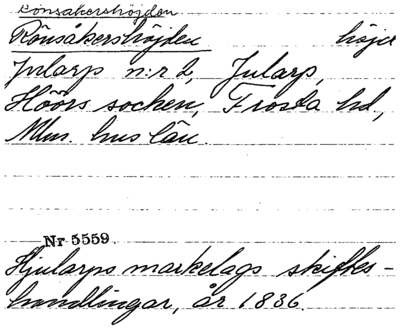 Rönsåkershöjden
Rönsåkershöjden höjd
Jularp n:r 2, Jularp,
Höörs socken, Frosta hd,
Mlm. hus län.
Nr 5559.
Hjularps markelags skiftes-
handlingar, år 1836.